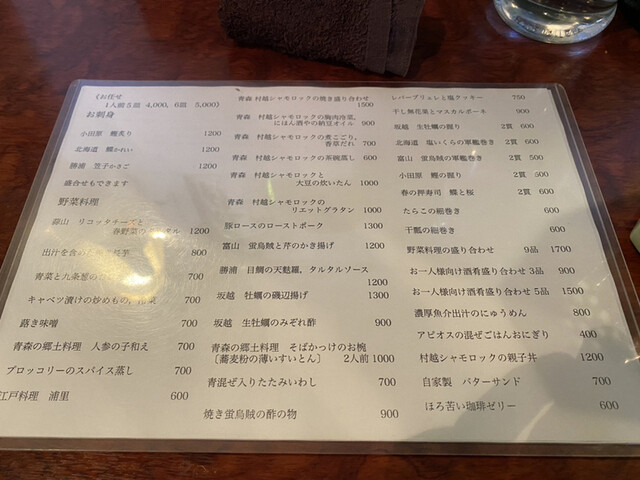 《お任せ
1人前5皿 4,000、6皿 5,000》
お刺身
小田原 鰹炙り 1200
北海道 鰈かれい 1200
勝浦 笠子かさご 1200
盛合せもできます
野菜料理
蒜山 リコッタチーズと
春野菜の タル 1200
出汁を含 芋 800
青菜と九条葱の 700
キャベツ漬けの炒めもの、 菜 700
蕗き味噌 700
青森の郷土料理 人参の子和え 700
ブロッコリーのスパイス蒸し 700
江戸料理 浦里 600
青森 村越シャモロックの焼き盛り合わせ
1500
青森 村越シャモロックの胸肉冷菜、
にほん酒やの納豆オイル 900
青森 村越シャモロックの煮こごり、
香草だれ 700
青森 村越シャモロックの茶碗蒸し 600
青森 村越シャモロックと
大豆の炊いたん 1000
青森 村越シャモロックの
リエットグラタン 1000
豚ロースのローストポーク 1300
富山 蛍烏賊と芹のかき揚げ 1200
勝浦 目鯛の天麩羅、タルタルソース
1200
坂越 牡蠣の磯辺揚げ 1300
坂越 生牡蠣のみぞれ酢 900
青森の郷土料理 そばかっけのお椀
〔蕎麦粉の薄いすいとん〕 2人前 1000
青混ぜ入りたたみいわし 700
焼き蛍烏賊の酢の物 900
レバーブリュレと塩クッキー 750
干し無花果とマスカルポーネ 900
坂越 生牡蠣の握り 2貫 600
北海道 塩いくらの軍艦巻き 2貫 600
富山 蛍烏賊の軍艦巻き 2貫 500
小田原 鰹の握り 2貫 500
春の押寿司 鰈と桜 2貫 600
たらこの細巻き 600
干瓢の細巻き 600
野菜料理の盛り合わせ 9品 1700
お一人様向け酒肴盛り合わせ 3品 900
お一人様向け酒肴盛り合わせ 5品 1500
濃厚魚介出汁のにゅうめん 800
アピオスの混ぜごはんおにぎり 400
村越シャモロックの親子丼 1200
自家製 バターサンド 700
ほろ苦い珈琲ゼリー 600